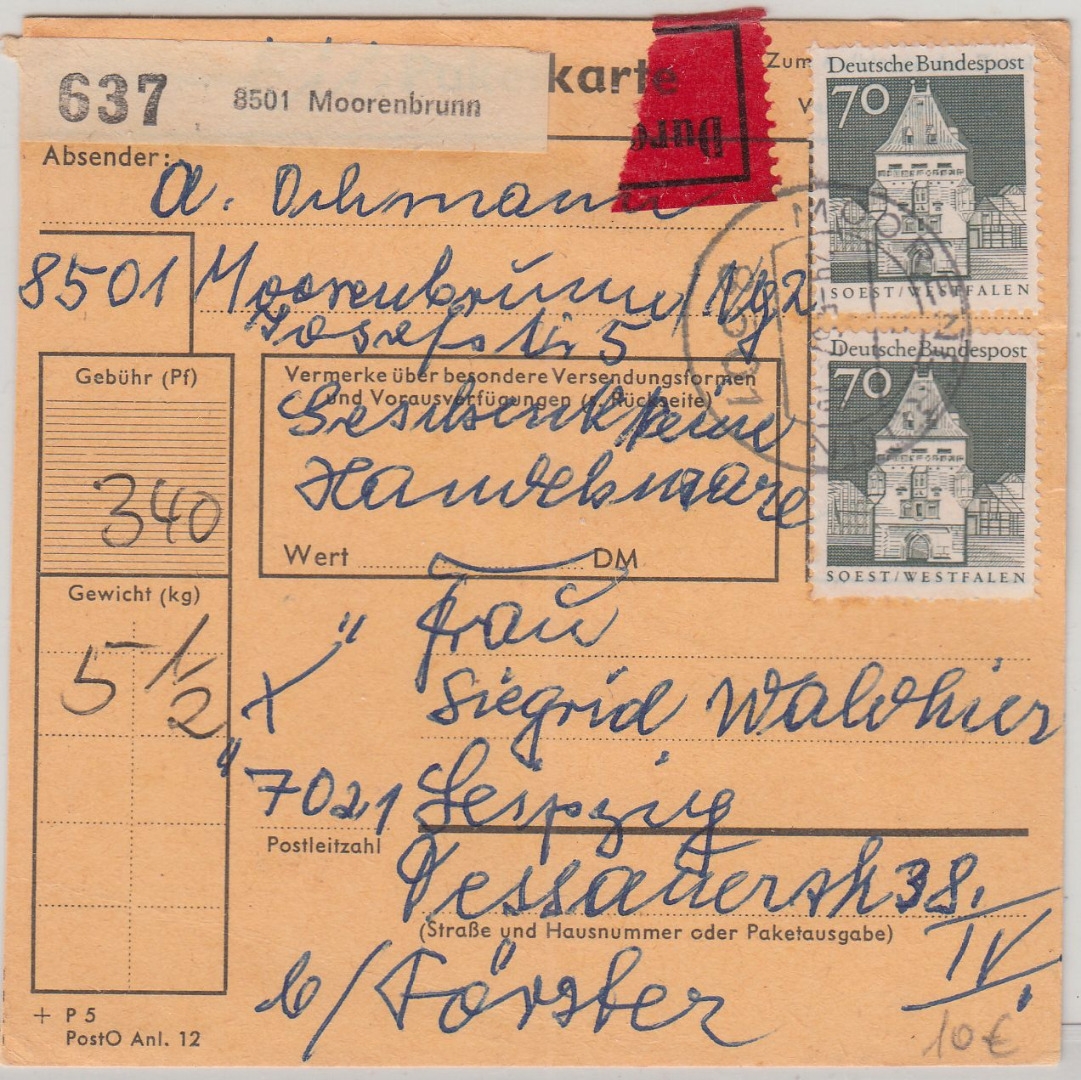 637 8501 Moorenbrunn
karte
Durc
Zum
V
Deutsche Bundespost
70
SOEST/WESTFALEN
Deutsche Bundespost
70
SOEST/WESTFALEN
8501
Absender:
A. Ochmann
8501 Moorenbrunn/Nbg 2
Josefstr 5
Gebühr (Pf)
340
Vermerke über besondere Versendungsformen
und Vorausverfügungen (s. Rückseite)
Geschenk keine
Handelsware
Wert DM
Gewicht (kg)
5 1/2
Frau
Siegrid
7021 Leipzig
Postleitzahl
Dessauerstr 38.
IV.
(Straße und Hausnummer oder Paketausgabe)
b/Förster
+ P 5
PostO Anl. 12
10€